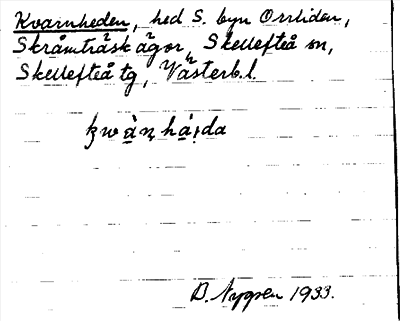 Kvarnheden, hed S. byn Orrliden,
Skråmträsk ägor, Skellefteå sn,
Skellefteå tg, Västerb. l.
D. Nygren 1933.